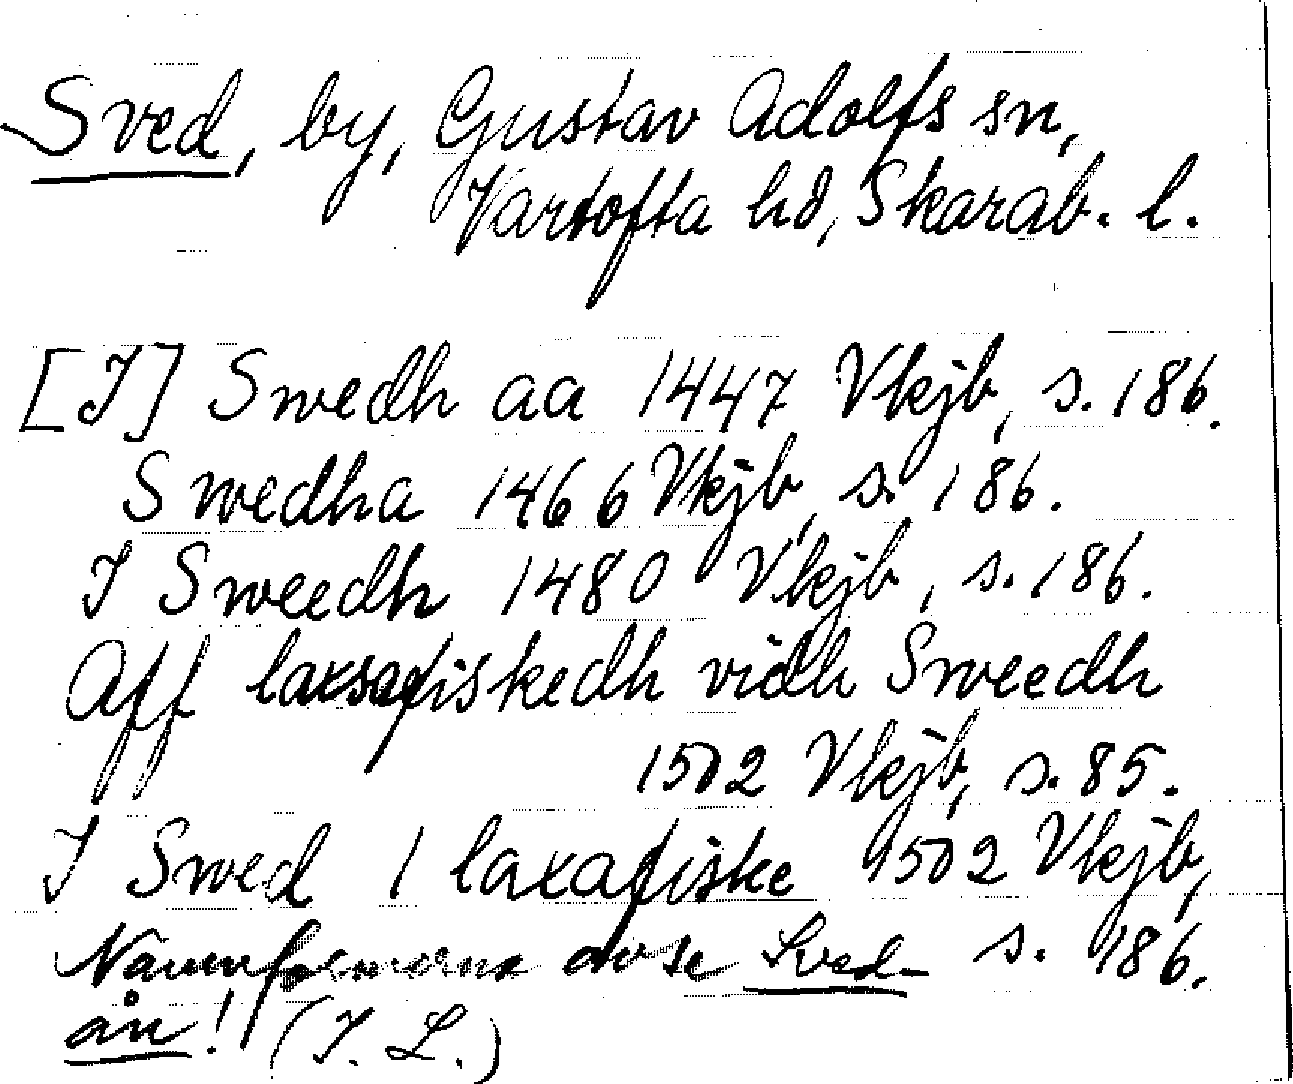 Sved, by, Gustav Adolfs sn,
Vartofta hd, Skarab. l.
[I] Swedh aa 1447 Vkjb, s. 186.
Swedha 1466 Vkjb, s. 186.
I Sweedh 1480 Vkjb, s. 186.
Aff laxsafiskedh vidh Sweedh
1502 Vkjb, s. 85.
I Swed 1 laxafiske 1502 Vkjb,
s. 186.
Namnformerna avse Sved-
ån! (I. L.)